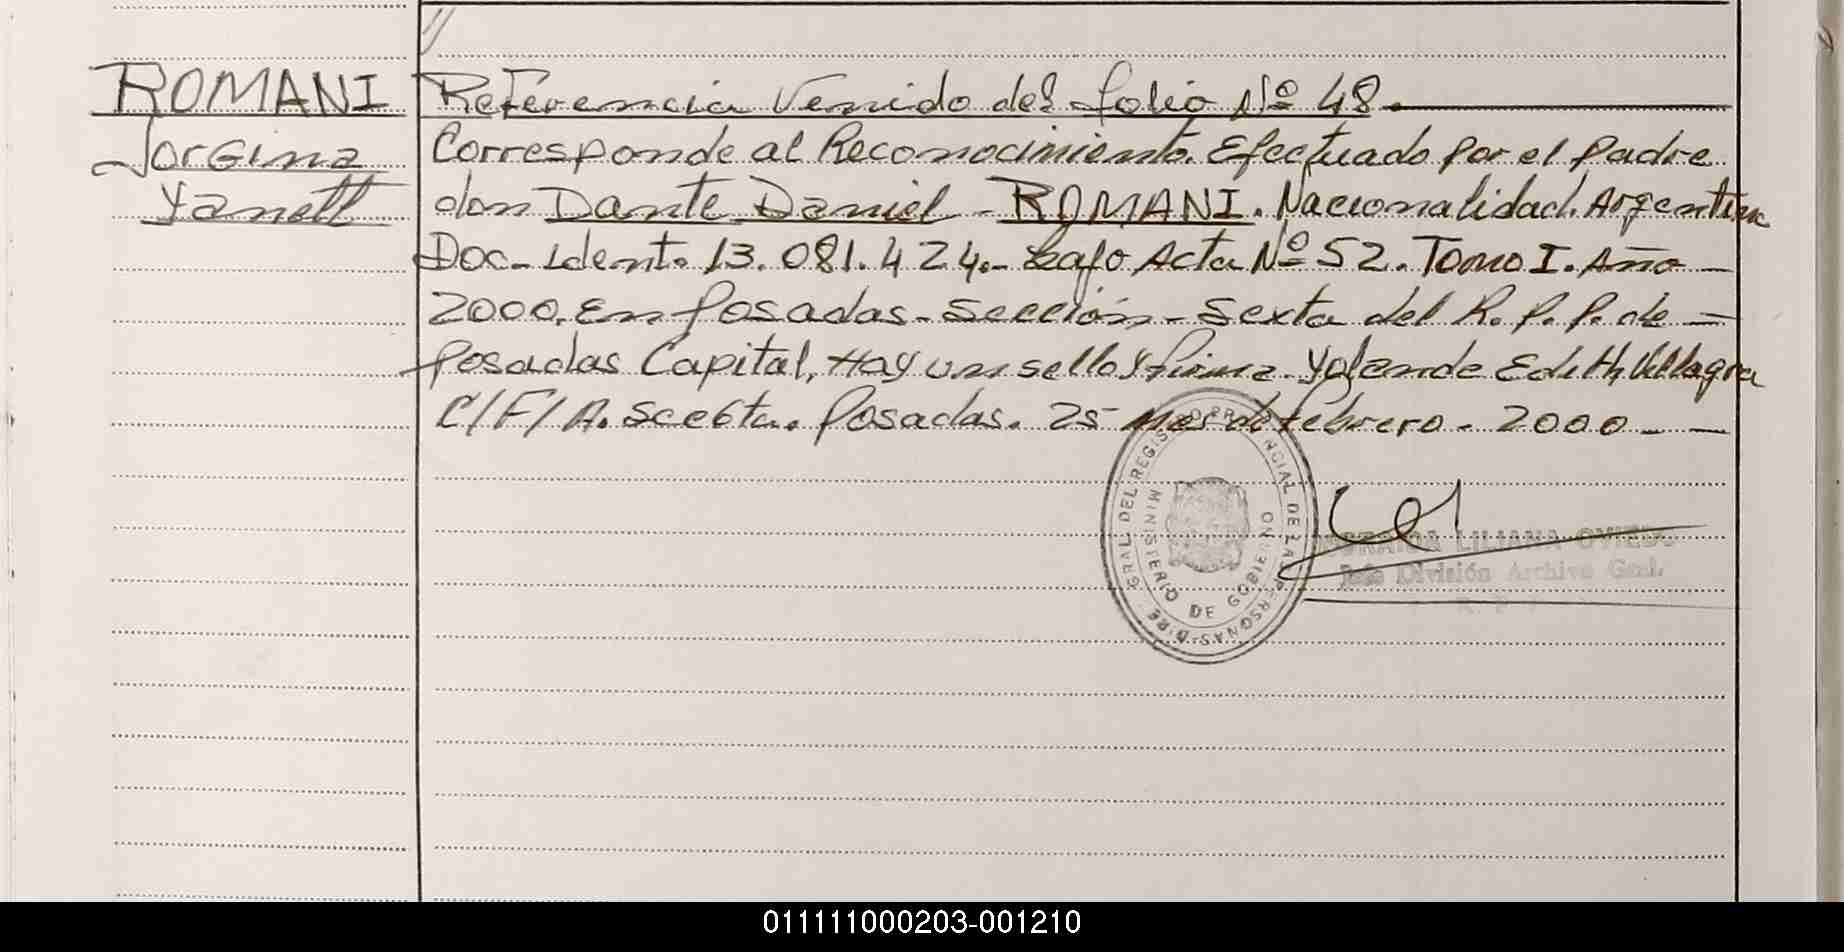 ROMANI
Jorgina
Yanett
Referencia Venido del folio Nº 48.
Corresponde al Reconocimiento. Efectuado por el padre
don Dante Daniel - ROMANI. Nacionalidad. Argentina
Doc- Ident. 13.081.424.- bajo Acta Nº 52. Tomo I. Año -
2000. En Posadas - Sección - Sexta del R. P. P. de -
Posadas Capital, Hay un sello y firma Yolanda Edith Villagra
C/F/A. Posadas. 25 mes de Febrero - 2000 - -
DIRE. GRAL. DEL REGISTRO PROVINCIAL DE LAS PERSONAS
MINISTERIO DE GOBIERNO
LILIANA OVIEDO
Jefe División Archivo Gral.
011111000203-001210